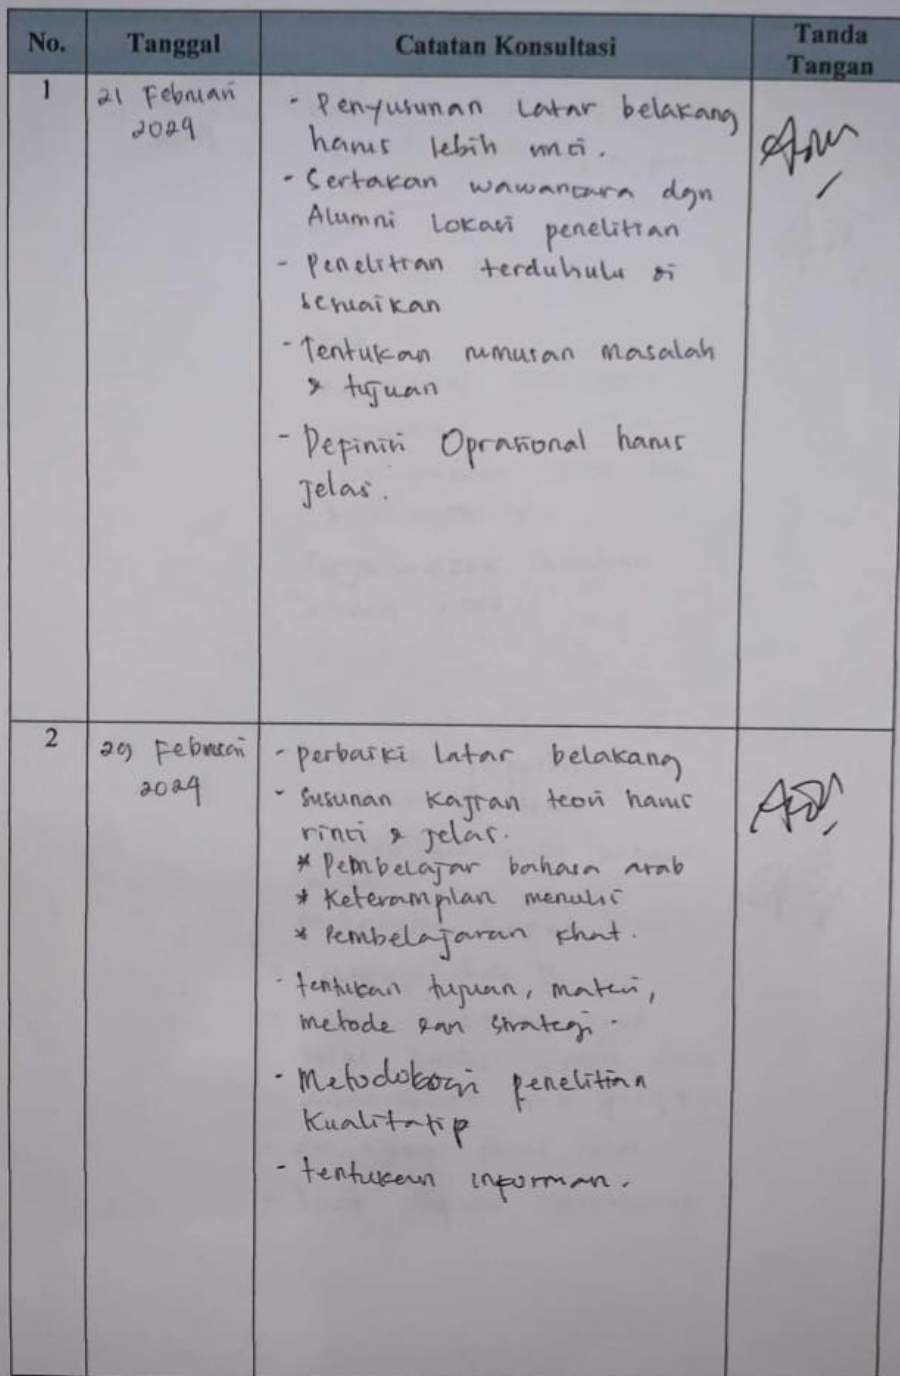 No. Tanggal Catatan Konsultasi Tanda Tangan
1
21 Februari
2024
- Penyusunan Latar belakang
harus lebih rinci.
- Sertakan wawancara dgn
Alumni Lokasi penelitian
- Penelitian terduhulu di
sesuaikan
- Tentukan rumusan masalah
& tujuan
- Definisi Oprasional harus
Jelas.
2
29 Februari
2024
- perbaiki latar belakang
- Susunan Kajian teori harus
rinci & jelas.
* Pembelajar bahasa arab
* Keteramplan menulis
* Pembelajaran khat.
- tentukan tujuan, materi,
metode dan strategi.
- Metodologi penelitian
Kualitatip
- tentukan informan.